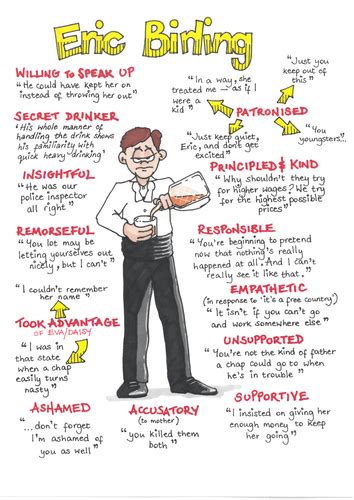 Eric Birling
WILLING TO SPEAK UP
"He could have kept her on
instead of throwing her out"
SECRET DRINKER
'His whole manner of
handling the drink shows
his familiarity with
quick heavy drinking'
INSIGHTFUL
"He was our
police inspector
all right"
REMORSEFUL
"You lot may be
letting yourselves out
nicely, but I can't"
"I couldn't remember
her name"
TOOK ADVANTAGE
OF EVA/DAISY
"I was in
that state
when a chap
easily turns
nasty"
ASHAMED
"...don't forget
I'm ashamed of
you as well"
ACCUSATORY
(to mother)
"you killed them
both"
"In a way, she
treated me — as if I
were a
kid"
"Just you
keep out
of this"
PATRONISED
"Just keep quiet,
Eric, and don't get
excited"
"You
youngsters..."
PRINCIPLED & KIND
"Why shouldn't they try
for higher wages? We try
for the highest possible
prices"
RESPONSIBLE
"You're beginning to pretend
now that nothing's really
happened at all. And I can't
really see it like that."
EMPATHETIC
(in response to 'it's a free country')
"It isn't if you can't go
and work somewhere else"
UNSUPPORTED
"You're not the kind of father
a chap could go to when
he's in trouble"
SUPPORTIVE
"I insisted on giving her
enough money to keep
her going"